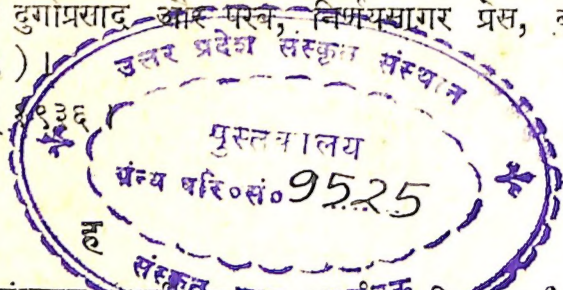 दुर्गाप्रसाद और परब, निर्णयसागर प्रेस,
) ।
१९३६ ।
उत्तर प्रदेश संस्कृत संस्थान
पुस्तकालय
ग्रंन्थ परि०सं० 9525
ह
संस्कृत